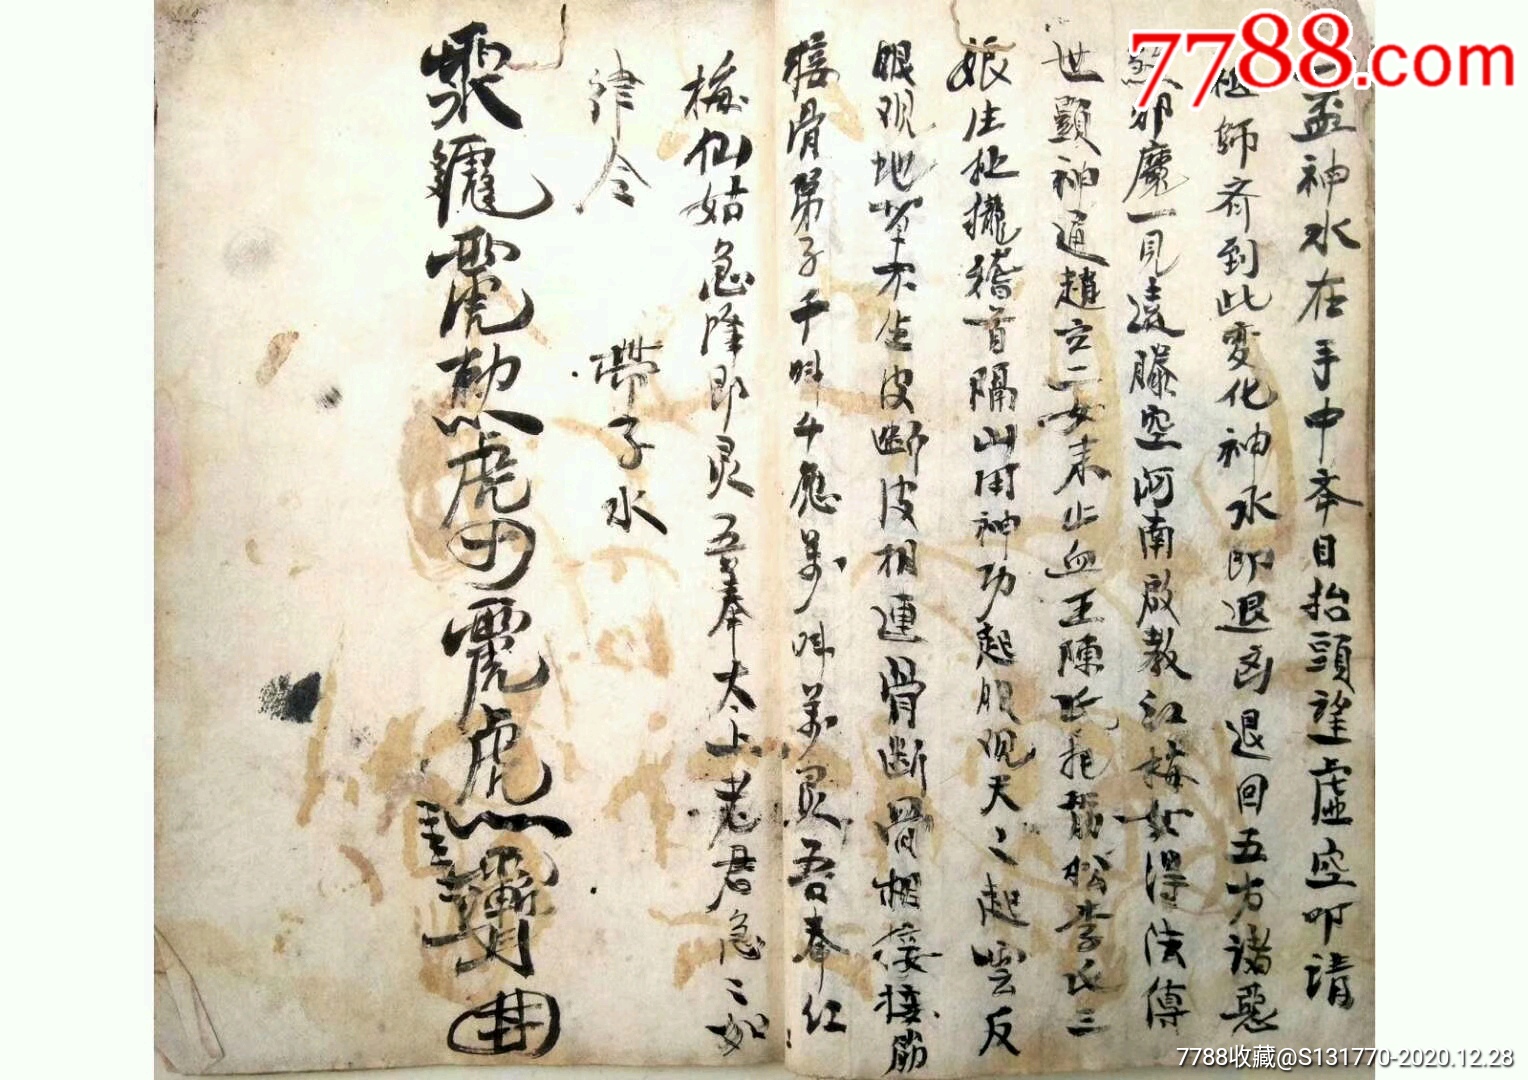 7788.com
一盃神水在手中夲目抬頭望虚空叩請
祖師齐到此变化神水即退凶退回五方諸惡
煞邪魔一見遠騰空河南啟教江梅女得法傳
世顕神通趙立二女来止血王陳氏祀筋松李氏三
娘庄扯攏稽首隔山用神功起眼观天〻起雲反
眼观地草不生皮断皮相連骨断骨相接接筋
接骨弟子千呌千應萬呌萬灵吾奉仁
梅仙姑急降即灵吾奉太上老君急〻如
律令 带子水
7788收藏@S131770-2020.12.28